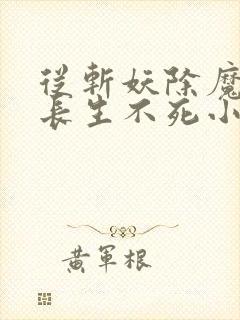 從斬妖除魔
長生不死小
黃軍根